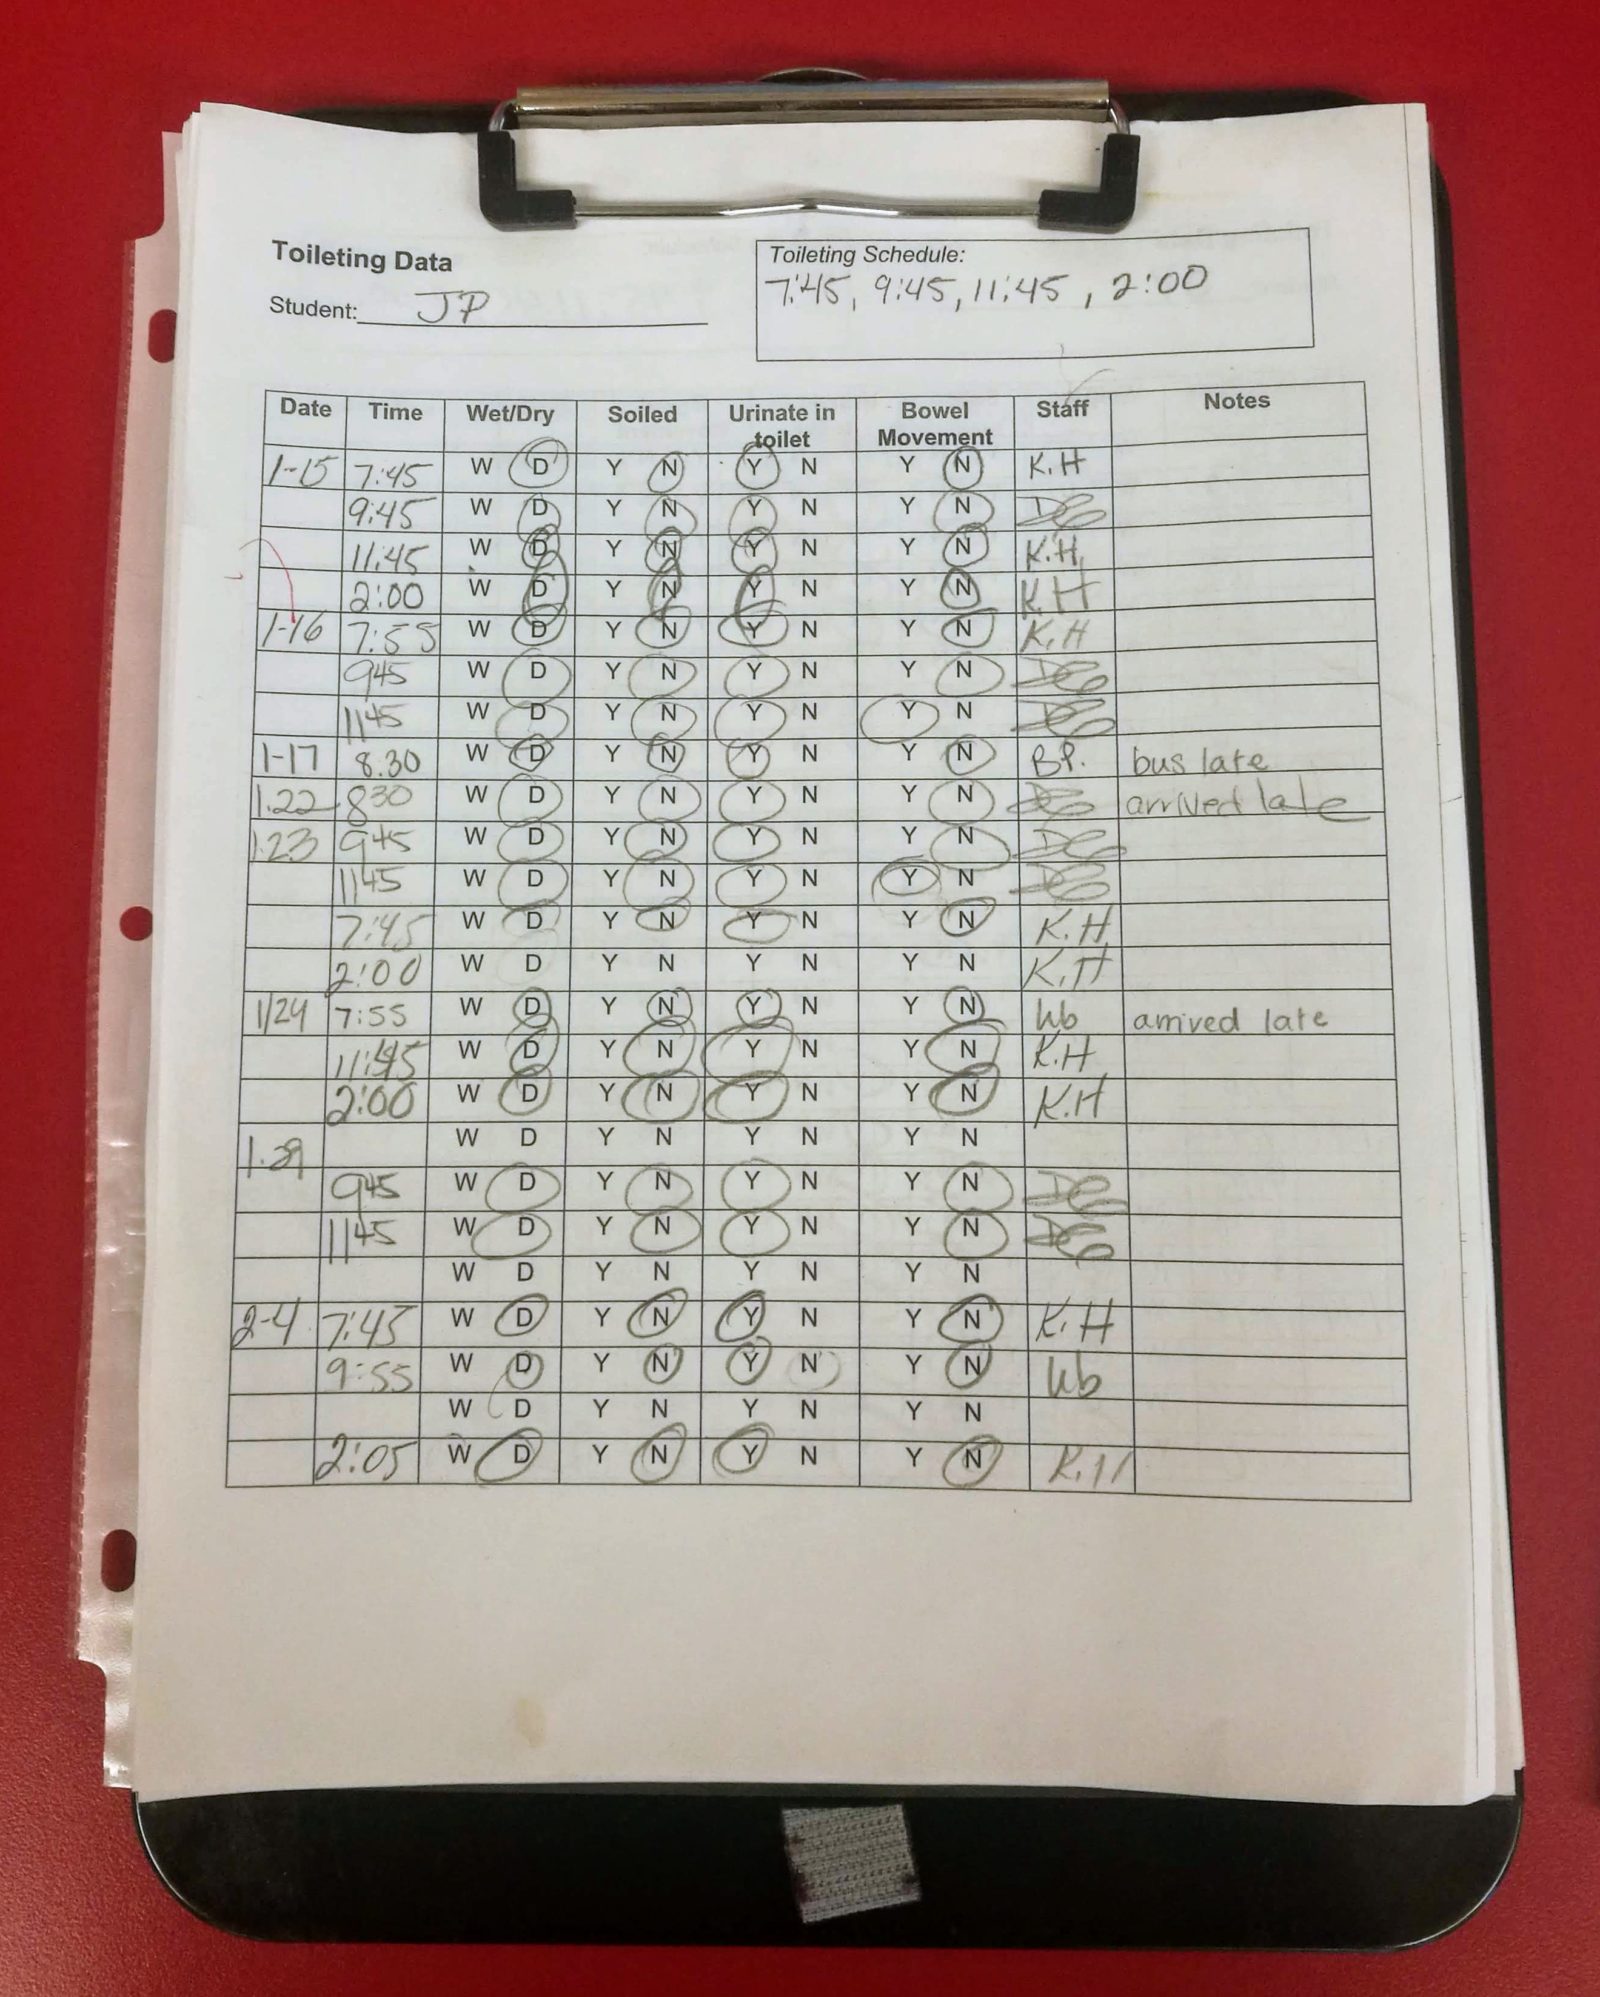 Toileting Data
Student: JP
Toileting Schedule:
7:45, 9:45, 11:45, 2:00
Date Time Wet/Dry Soiled Urinate in toilet Bowel Movement Staff Notes
1-15 7:45 W D Y N Y N Y N K.H
9:45 W D Y N Y N Y N
11:45 W D Y N Y N Y N K.H.
2:00 W D Y N Y N Y N K.H
1-16 7:55 W D Y N Y N Y N K.H
945 W D Y N Y N Y N
1145 W D Y N Y N Y N
1-17 8:30 W D Y N Y N Y N BP. bus late
1.22 830 W D Y N Y N Y N arrived late
1.23 945 W D Y N Y N Y N
1145 W D Y N Y N Y N
7:45 W D Y N Y N Y N K.H
2:00 W D Y N Y N Y N K.H
1/24 7:55 W D Y N Y N Y N arrived late
11:45 W D Y N Y N Y N K.H
2:00 W D Y N Y N Y N K.H
1.29 W D Y N Y N Y N
945 W D Y N Y N Y N
1145 W D Y N Y N Y N
W D Y N Y N Y N
2-4 7:45 W D Y N Y N Y N K.H
9:55 W D Y N Y N Y N
W D Y N Y N Y N
2:05 W D Y N Y N Y N K.H